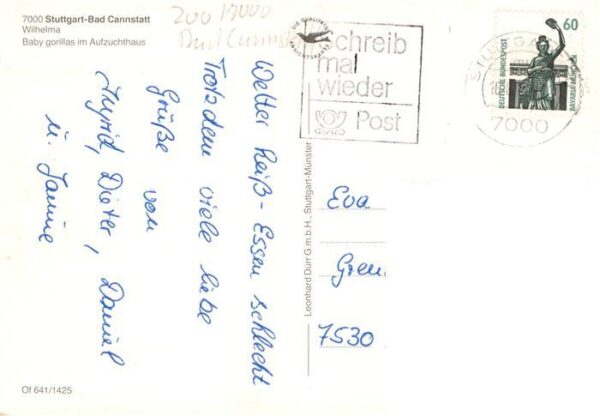 7000 Stuttgart-Bad Cannstatt
Wilhelma
Baby gorillas im Aufzuchthaus
Zoo 17000
Bad Cannst
DIE QUALITÄTS
ANSICHTSKARTE
Schreib
mal
wieder
Post
60
DEUTSCHE BUNDESPOST
BAVARIA MÜNCHEN
STUTTGART
7000
Wetter heiß - Essen schlecht
Trotzdem viele liebe
Grüße von
Ingrid, Dieter, Daniel
u. Janine
Leonhard Dürr G.m.b.H., Stuttgart-Münster
Eva
Gren
7530
Of 641/1425